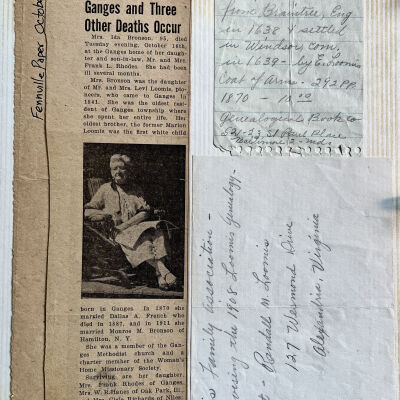 Fennville Paper October
Ganges and Three
Other Deaths Occur
Mrs. Ida Bronson, 95, died
Tuesday evening, October 16th,
at the Ganges home of her daugh-
ter and son-in-law, Mr. and Mrs.
Frank L. Rhodes. She had been
ill several months.
Mrs. Bronson was the daughter
of Mr. and Mrs. Levi Loomis, pio-
neers, who came to Ganges in
1841. She was the oldest resi-
dent of Ganges township where
she spent her entire life. Her
oldest brother, the former Marion
Loomis was the first white child
born in Ganges. In 1870 she
married Dallas A. French who
died in 1887, and in 1911 she
married Monroe M. Bronson of
Hamilton, N. Y.
She was a member of the Gan-
ges Methodist church and a
charter member of the Woman's
Home Missionary Society.
Surviving are her daughter,
Mrs. Frank Rhodes of Ganges,
Mrs. W. R. Hanes of Oak Park, Ill.,
Richards of Niles,
from Braintree, Eng
in 1638 & settled
in Windsor, Conn,
in 1639 - by E. Loomis
Coat of Arms - 292 PP.
1870 10 00
Genealogical Book Co
521-23 St Paul Place
Baltimore 2 - Md.
s Family Association -
the 1908 Loomis Genealogy -
t - Randall M. Loomis
127 Wesmond Drive
Alexandria, Virginia